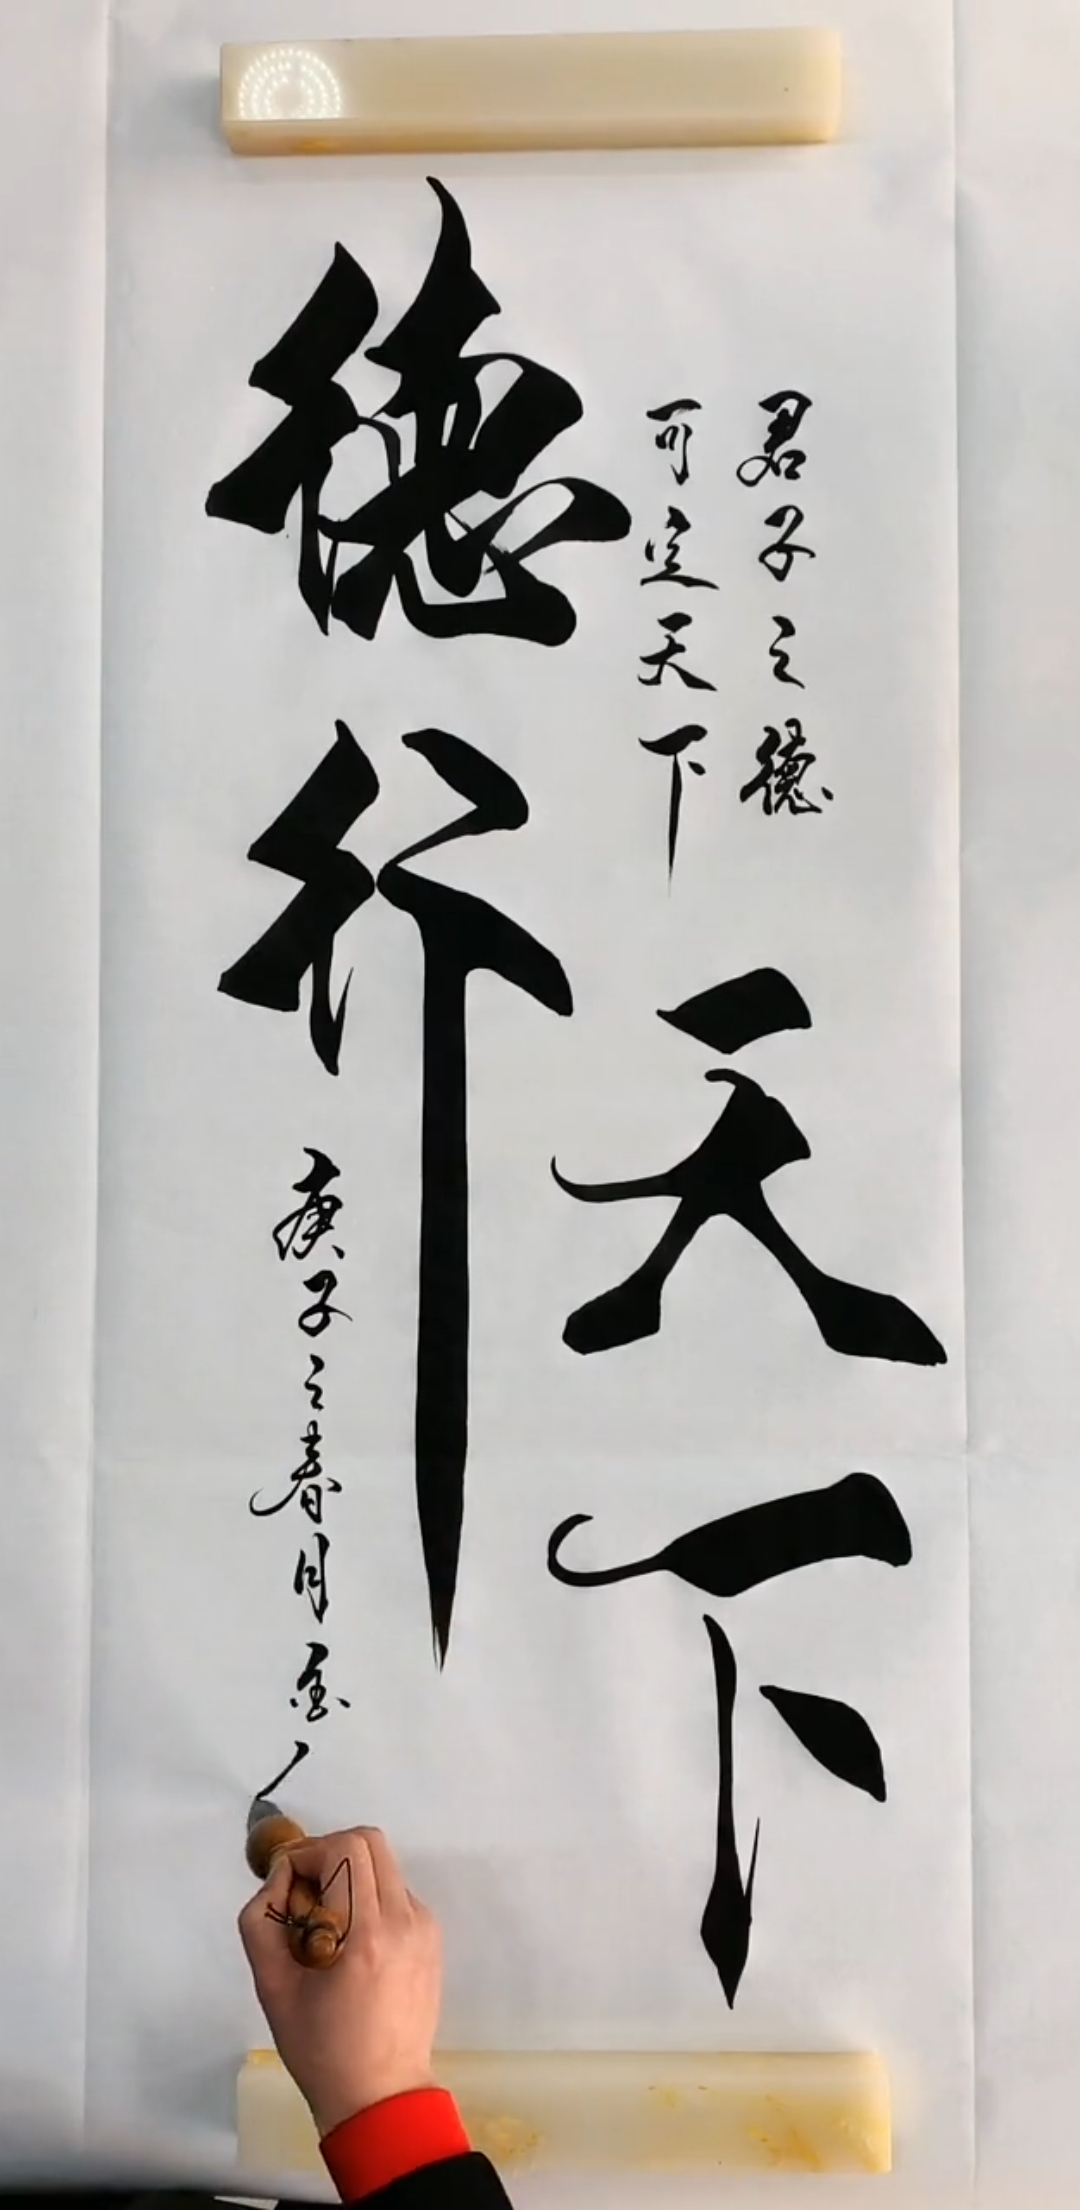 君子之德
可定天下
天下
德行
庚子之春月金